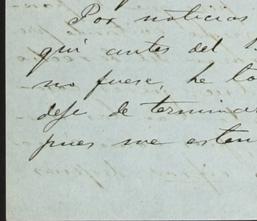 Por noticias
qui antes del
no fuese, he to
deje de terminar
pues me exten